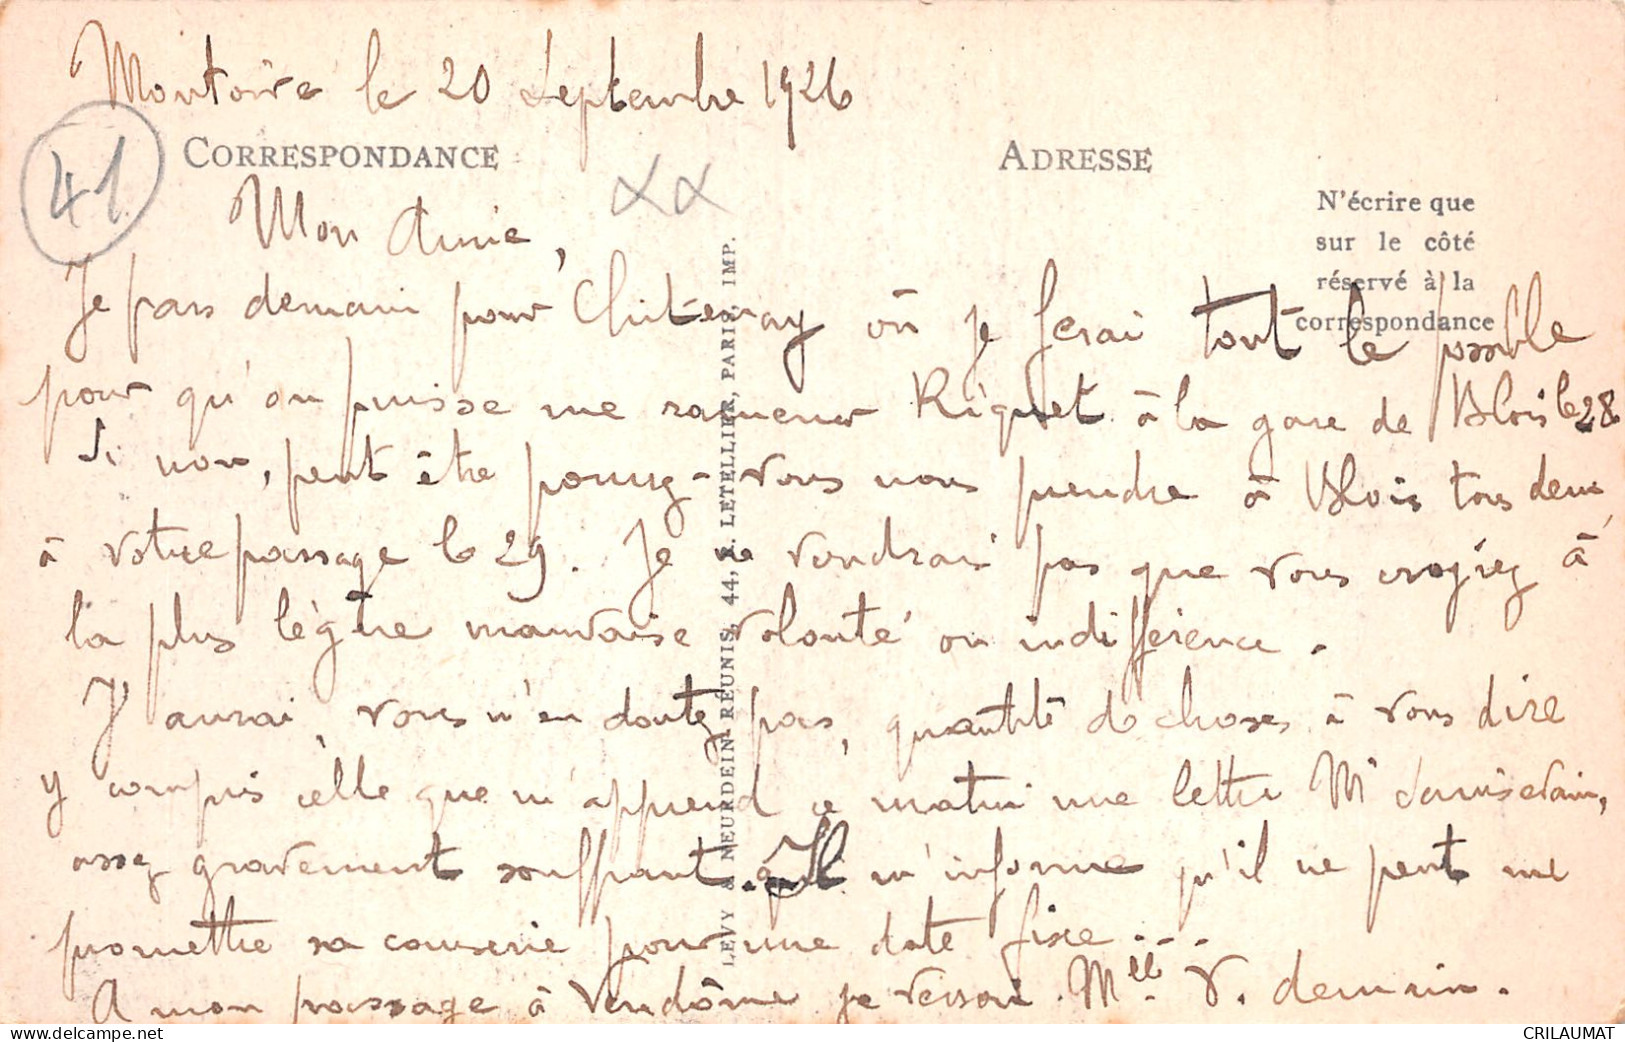 Montoire le 20 Septembre 1926
41
CORRESPONDANCE
ADRESSE
N'écrire que
sur le côté
réservé à la
correspondance
Mon Amie,
Je pars demain pour Chitenay où je ferai tout le possible
pour qu'on puisse me ramener Riquet à la gare de Blois le 28
Si non, peut être pourrez-vous nous prendre à Blois tous deux
à votre passage le 29. Je ne voudrais pas que vous croyiez à
la plus légère mauvaise volonté ou indifférence.
J'aurai, vous n'en doutez pas, quantité de choses à vous dire
y compris celle que m'apprend ce matin une lettre Mr
assez gravement souffrant. Il m'informe qu'il ne peut me
promettre sa causerie pour une date fixe....
A mon passage à Vendôme je verrai Mlle V. demain.
LEVY & NEURDEIN RÉUNIS, 44, R. LETELLIER, PARIS, IMP.
CRILAUMAT